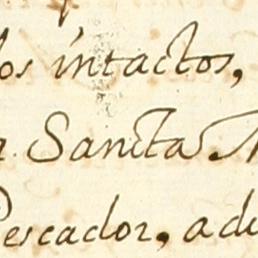 los intactos,
Sancta
Pescador, adu